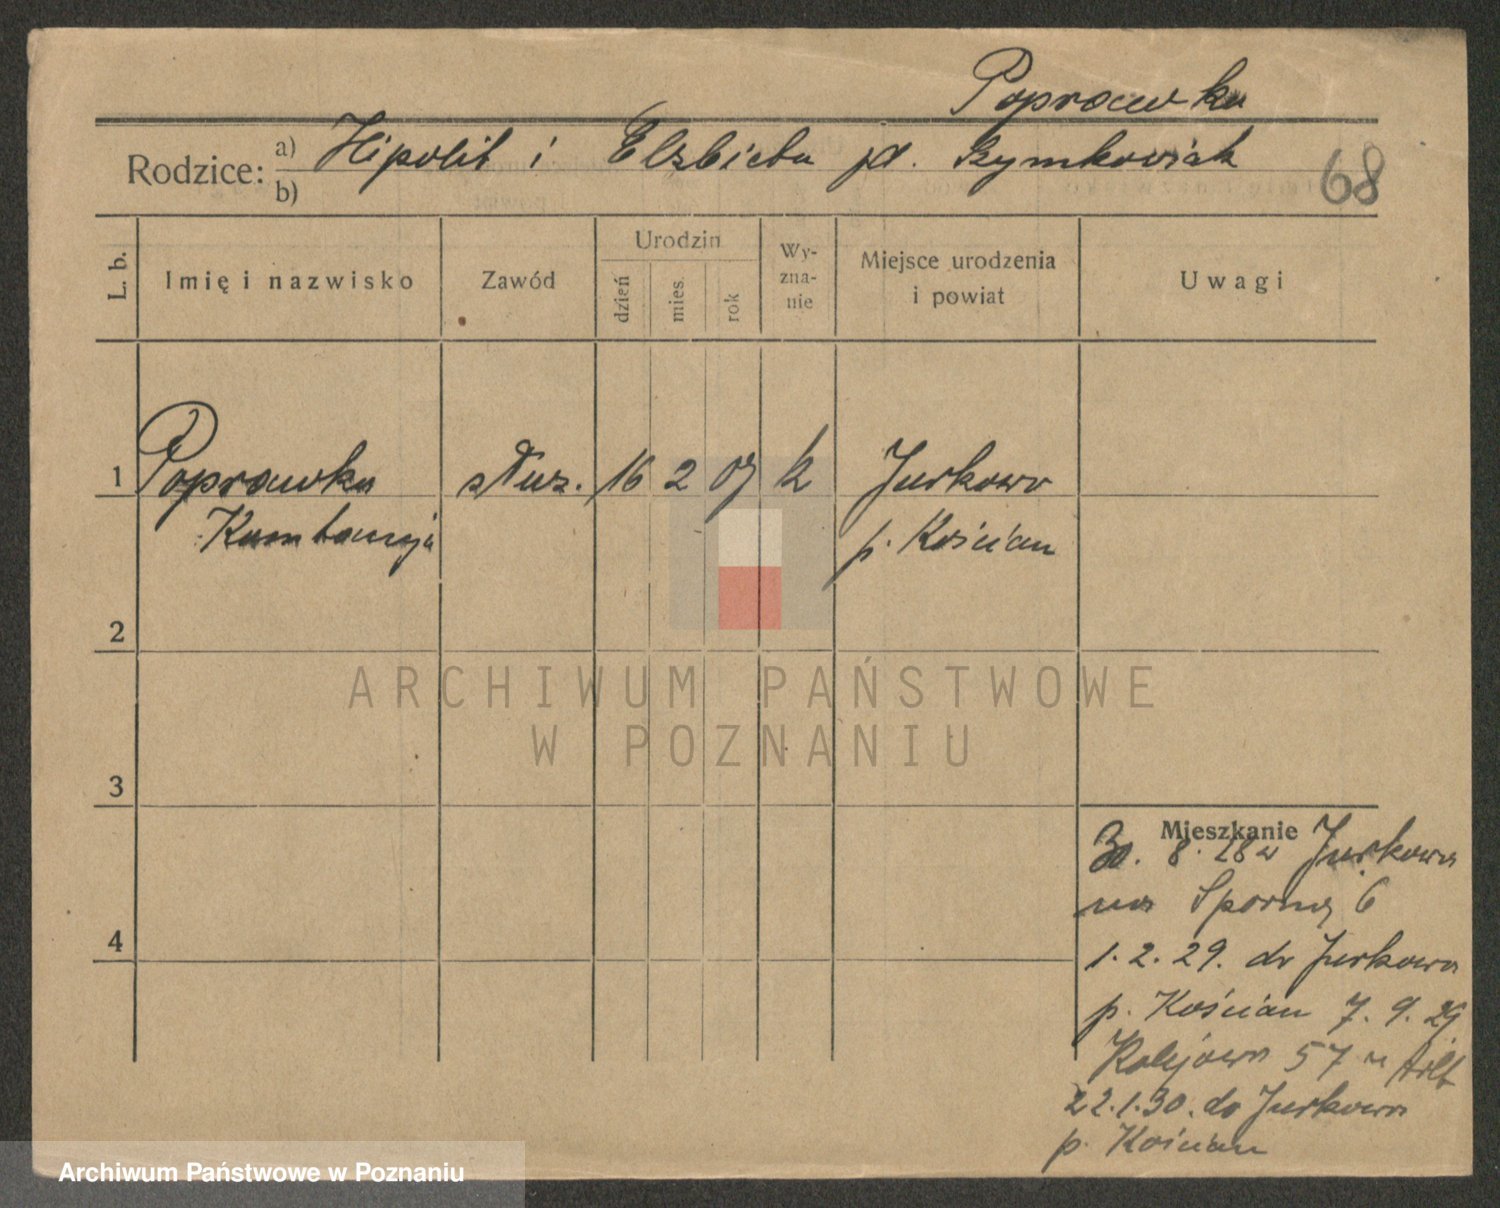 Poprawka
Rodzice: a) Hipolit i Elzbieta
b)
68
L. b.
Imię i nazwisko
Zawód
Urodzin
dzień
mies.
rok
Wy-
zna-
nie
Miejsce urodzenia
i powiat
Uwagi
1 Poprawka służ. 16 2 07 k Jurkowo
p. Kościan
2
3
4
Mieszkanie
30. 8. 28 z Jurkowa
na Sporną 6
1. 2. 29. do Jurkowa
p. Kościan 7. 9. 29
Kolejowa 57
22. 1. 30. do Jurkowa
p. Kościan
ARCHIWUM PAŃSTWOWE
W POZNANIU
Archiwum Państwowe w Poznaniu